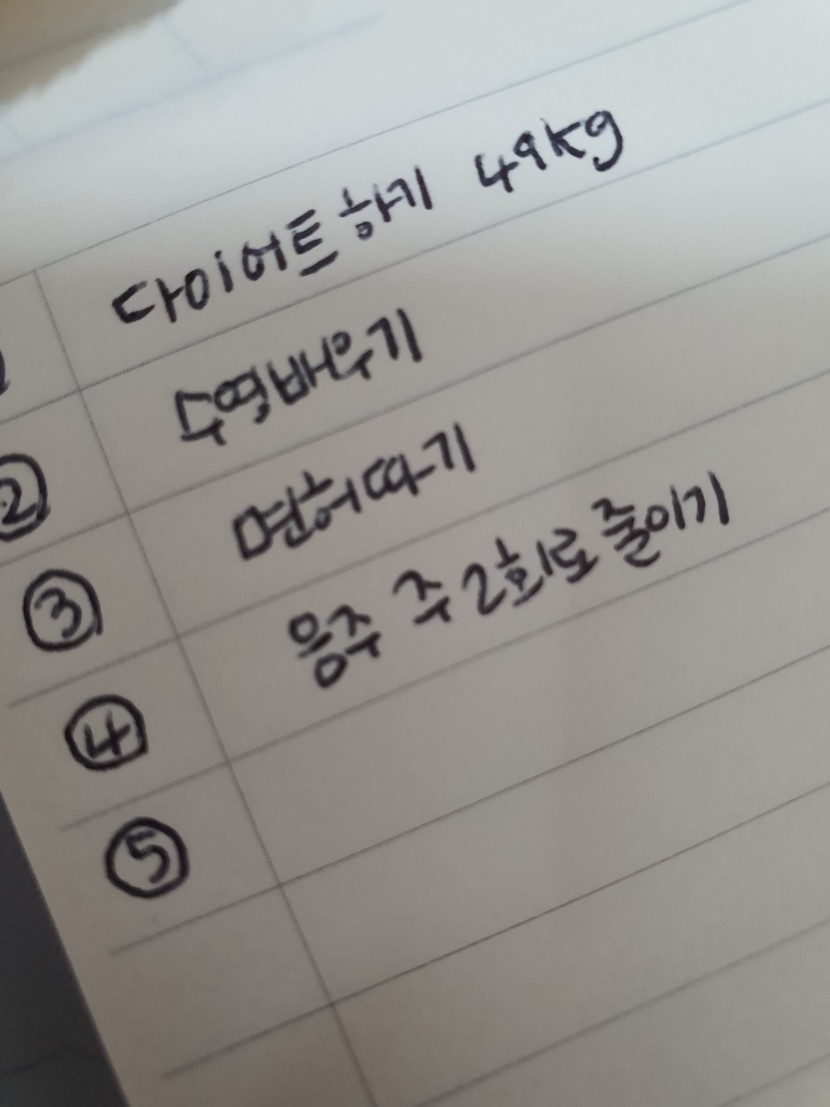 다이어트하기 49kg
② 수영배우기
③ 면허따기
④ 음주 주2회로 줄이기
⑤